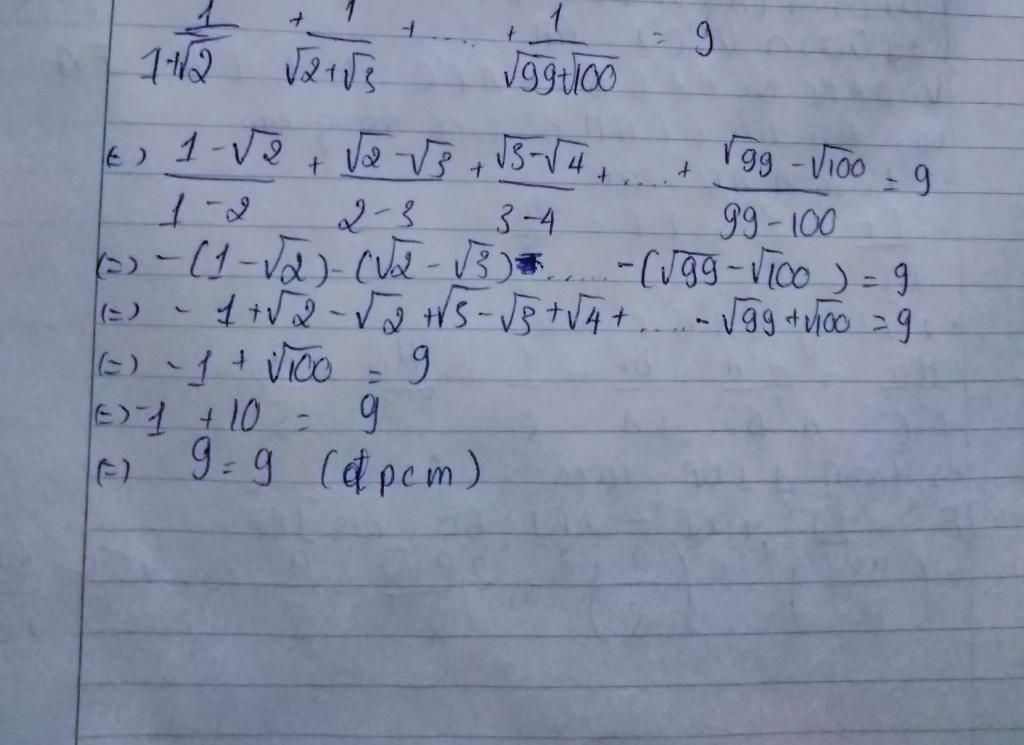 1/(1+√2) + 1/(√2+√3) + .... + 1/(√99+√100) = 9
(=) (1-√2)/(1-2) + (√2-√3)/(2-3) + (√3-√4)/(3-4) + .... + (√99-√100)/(99-100) = 9
(=) -(1-√2)-(√2-√3) ..... -(√99-√100) = 9
(=) -1+√2-√2+√3-√3+√4+ .... -√99+√100 = 9
(=) -1+√100 = 9
(=) -1+10 = 9
(=) 9=9 (đpcm)